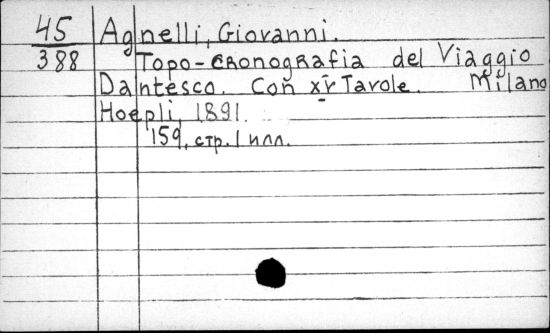 45 Agnelli, Giovanni.
388 Topo-cronografia del Viaggio
Dantesco. Con XV Tavole. Milano
Hoepli, 1891.
159, стр. 1 илл.